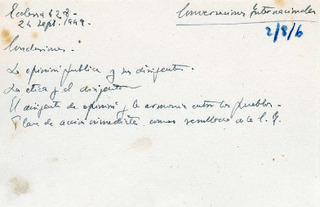 Ecclesia 428
24 Sept. 1949.
Conversaciones Internacionales
2/8/6
Conclusiones:
La opinión pública y sus dirigentes.
La ética y el dirigente
El dirigente de opinión y la armonía entre los pueblos.
Plan de acción inmediata como